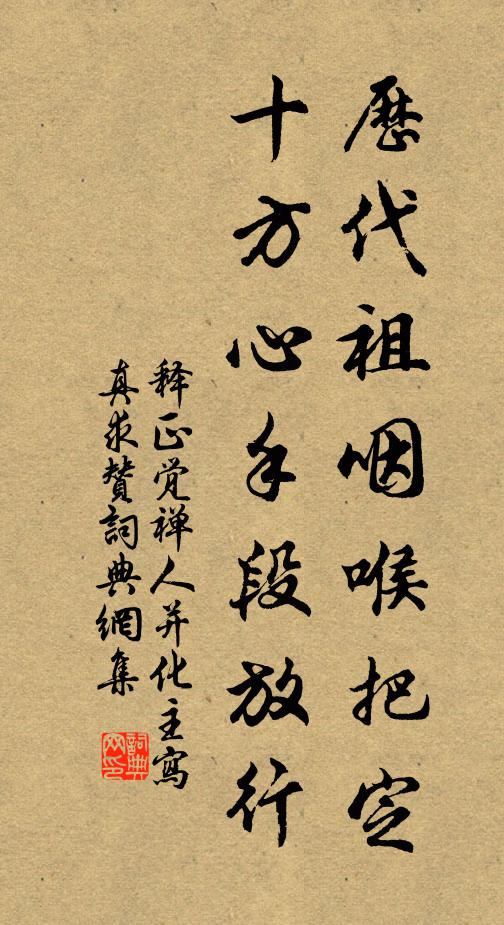 歷代祖咽喉把定
十方心手段放行
释正觉禅人并化主寫
真求贊詞典網集
詞典网印